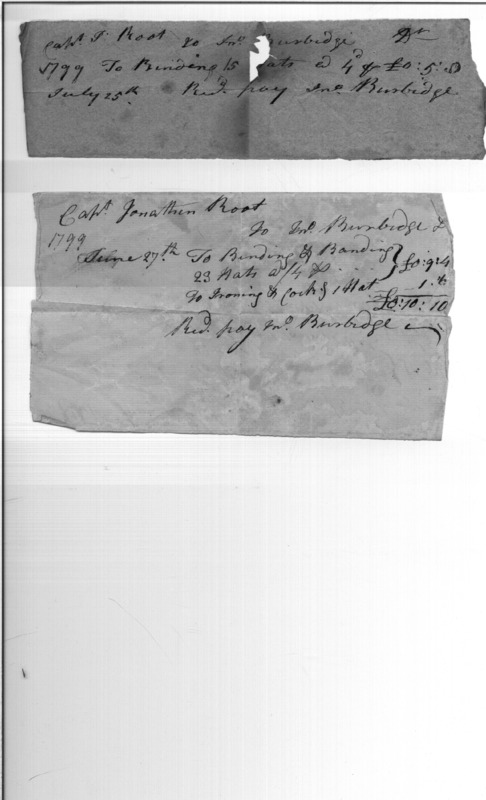 Capt J. Root to Jno Burbidge Dr
1799 To Binding 15 Hats @ 4d £0:5:0
July 25th Recd pay Jno Burbidge
Capt Jonathan Root
To Jno Burbidge
1799
June 27th To Binding & Banding
23 Hats @ /4 £0:9:4
To Ironing & Cockg 1 Hat 1:6
£0:10:10
Recd pay Jno Burbidge